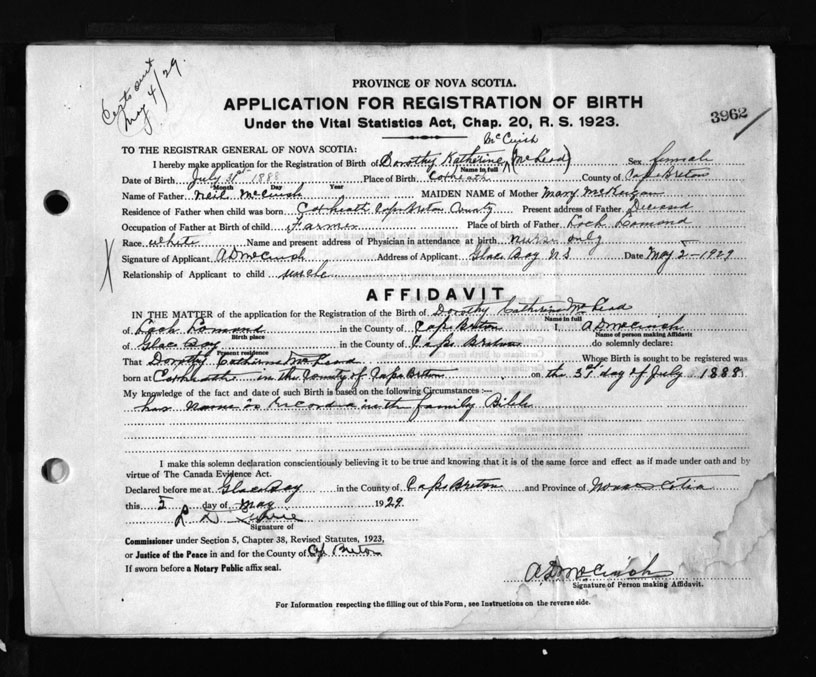 Certs out
May 4/29.
PROVINCE OF NOVA SCOTIA.
APPLICATION FOR REGISTRATION OF BIRTH
Under the Vital Statistics Act, Chap. 20, R. S. 1923.
3962
TO THE REGISTRAR GENERAL OF NOVA SCOTIA:
McCuish
I hereby make application for the Registration of Birth of Dorothy Katherine (McLeod) Sex female
Name in full
Date of Birth July 3rd 1888 Place of Birth Coxheath County of Cape Breton
Month Day Year
Name of Father Neil McCuish MAIDEN NAME of Mother Mary
Residence of Father when child was born Coxheath Cape Breton County Present address of Father Deceased
Occupation of Father at Birth of child Farmer Place of birth of Father Loch Lomond
Race white Name and present address of Physician in attendance at birth nurse only
Signature of Applicant A D McCuish Address of Applicant Glace Bay N S Date May 2 - 1929
Relationship of Applicant to child
AFFIDAVIT
IN THE MATTER of the application for the Registration of the Birth of Dorothy Catherine McLeod
Name in full
of Loch Lomond in the County of Cape Breton I, A D McCuish
Birth place Name of person making Affidavit
of Glace Bay in the County of Cape Breton do solemnly declare:
Present residence
That Dorothy Catherine McLeod Whose Birth is sought to be registered was
born at Coxheath in the County of Cape Breton on the 3rd day of July 1888
My knowledge of the fact and date of such Birth is based on the following Circumstances :—
has name is recorded in the family Bible
I make this solemn declaration conscientiously believing it to be true and knowing that it is of the same force and effect as if made under oath and by
virtue of The Canada Evidence Act.
Declared before me at Glace Bay in the County of Cape Breton and Province of Nova Scotia
this 2 day of May 1929
Signature of
Commissioner under Section 5, Chapter 38, Revised Statutes, 1923,
or Justice of the Peace in and for the County of Cap Breton
If sworn before a Notary Public affix seal.
A D McCuish
Signature of Person making Affidavit.
For Information respecting the filling out of this Form, see Instructions on the reverse side.